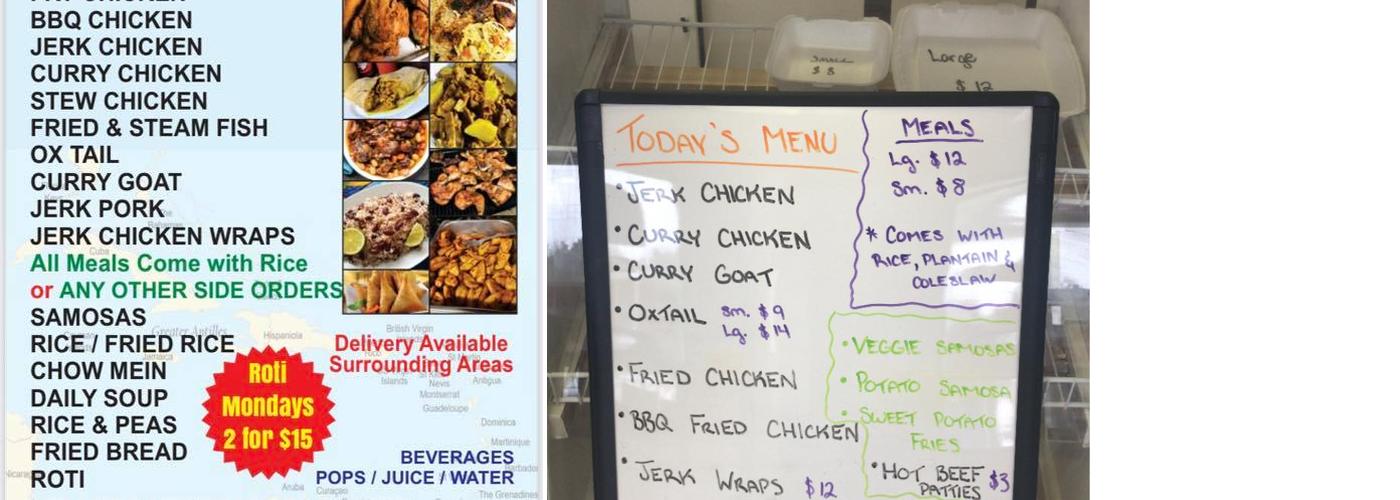 BBQ CHICKEN
JERK CHICKEN
CURRY CHICKEN
STEW CHICKEN
FRIED & STEAM FISH
OX TAIL
CURRY GOAT
JERK PORK
JERK CHICKEN WRAPS
All Meals Come with Rice
or ANY OTHER SIDE ORDERS
SAMOSAS
RICE / FRIED RICE
CHOW MEIN
DAILY SOUP
RICE & PEAS
FRIED BREAD
ROTI
Roti
Mondays
2 for $15
Delivery Available
Surrounding Areas
BEVERAGES
POPS / JUICE / WATER
Cuba
Greater Antilles
Hispaniola
Jamaica
British Virgin
Islands
Nevis
Antigua
Montserrat
Guadeloupe
Dominica
Martinique
Aruba
Curaçao
The Grenadines
SMALL
$8
Large
$12
TODAY'S MENU
• JERK CHICKEN
• CURRY CHICKEN
• CURRY GOAT
• OXTAIL sm. $9
Lg. $14
• FRIED CHICKEN
• BBQ FRIED CHICKEN
• JERK WRAPS $12
MEALS
Lg. $12
Sm. $8
* COMES WITH
RICE, PLANTAIN &
COLESLAW
• VEGGIE SAMOSAS
• POTATO SAMOSA
• SWEET POTATO
FRIES
• HOT BEEF
PATTIES $3